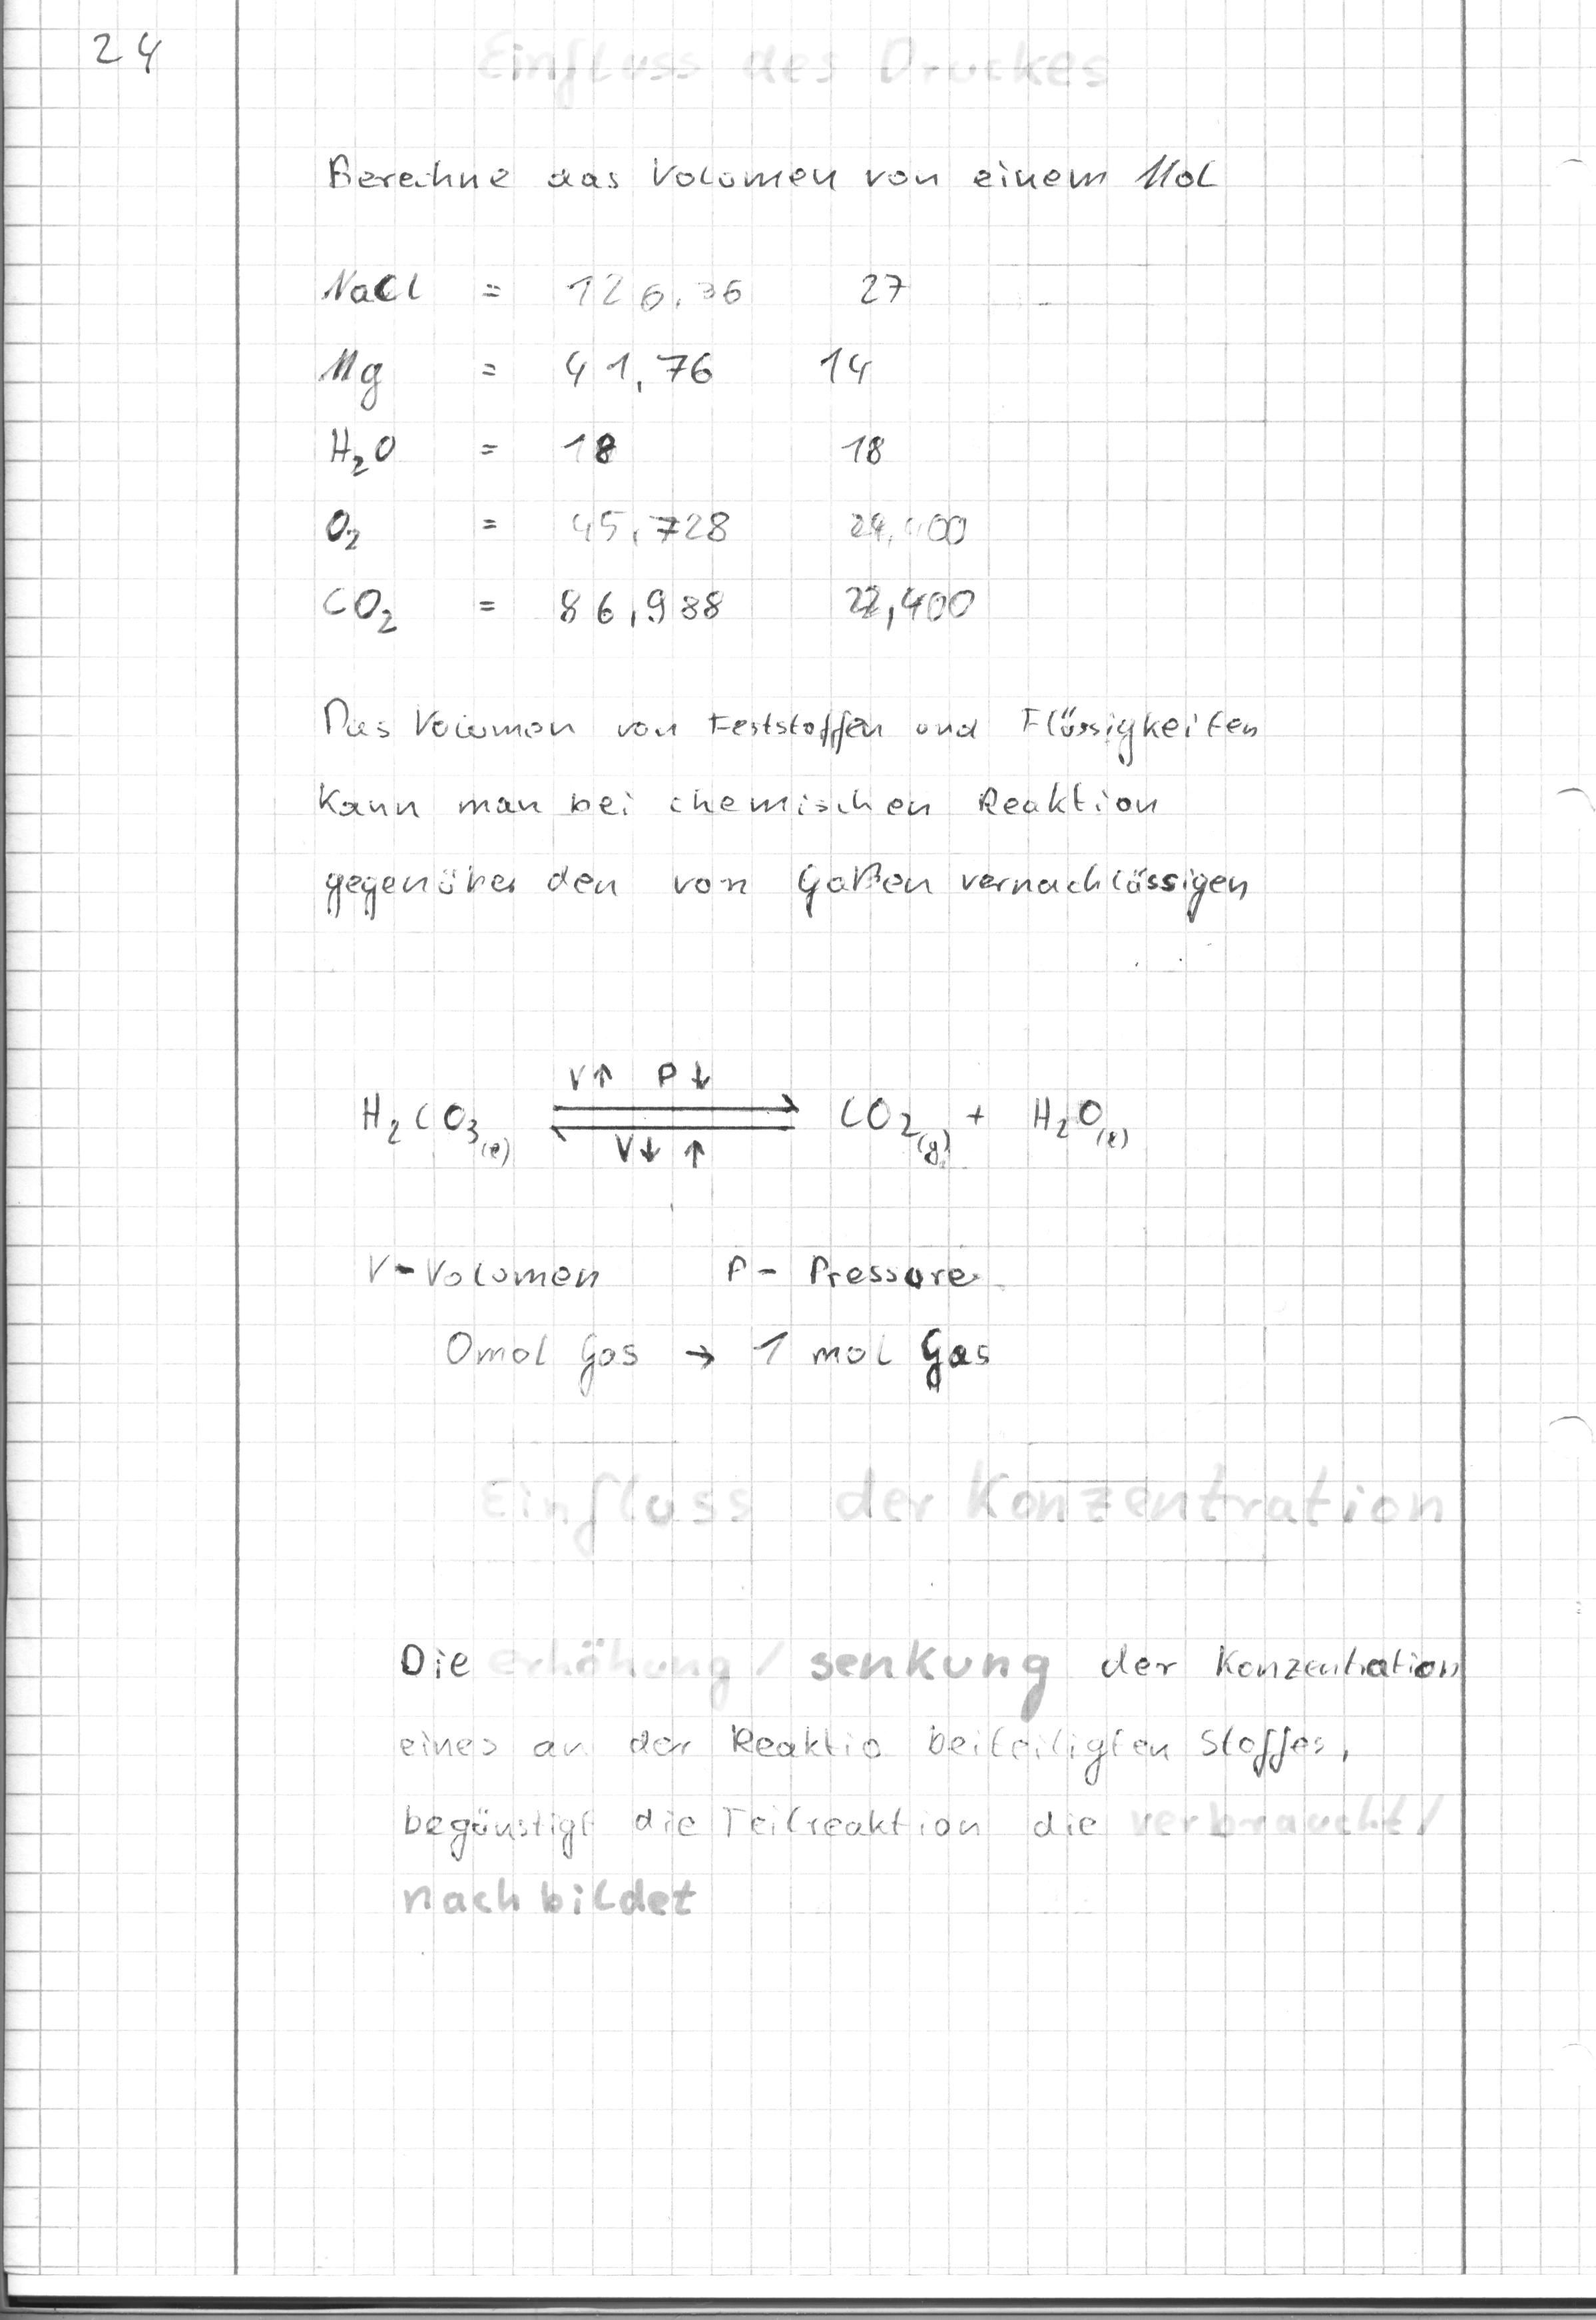 24
Einfluss des Druckes
Berechne das Volumen von einem Mol
NaCl = 126,36 27
Mg = 41,76 14
H₂O = 18 18
O₂ = 45,728 24,400
CO₂ = 86,988 22,400
Das Volumen von Feststoffen und Flüssigkeiten
kann man bei chemischen Reaktion
gegenüber den von Gaßen vernachlässigen
V↑ P↓
H₂CO₃(l) ⇌ CO₂(g) + H₂O(l)
V↓ ↑
V-Volumen P - Pressure
0mol Gas → 1 mol Gas
Einfluss der Konzentration
Die erhöhung / senkung der Konzentration
eines an der Reaktio beiteiligten Stoffes,
begünstigt die Teilreaktion die verbraucht/
nachbildet